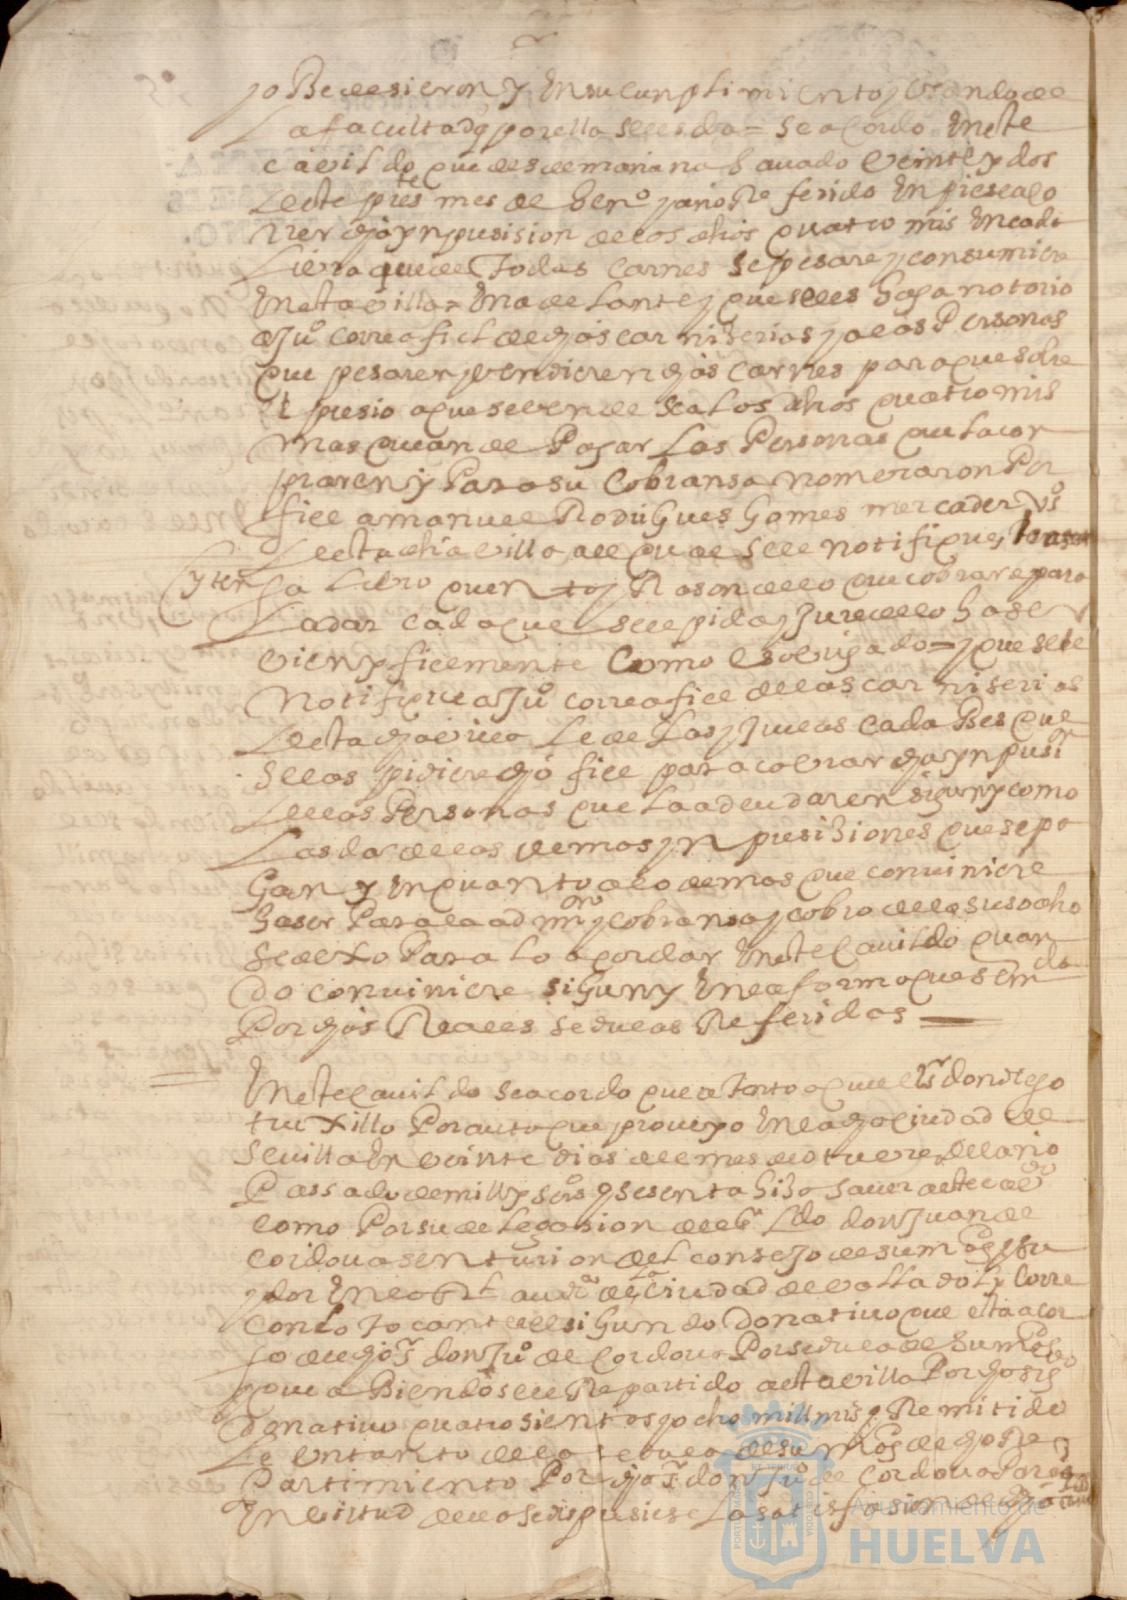 yo Bedesieron y en su cunplimiento y usando de
la facultad q por ella se les da = se acordo en este
cavildo que desde mañana savado veinte y dos
deste preste mes de henº y año Referido enpiese a co
rrer dha ynpusision de los dhos quatro mrs en cada
libra que de todas carnes se pesare y consumiere
en esta villa = en adelante y que se les haga notorio
a Juº correa fiel de dhas carniserias y a las Personas
que pesaren y vendieren dhas carnes para que sobre
el presio a que se vende sea los dhos quatro mrs
mas que an de Pagar las Personas que la con
praren y Para su Cobransa nombraron Por
fiel a manuel Rodrigues Gomes mercader Vsº
desta dha villa al qual se le notifique tenga
libro quenta y Rason de lo que cobrare para
la dar cada que se le pida y Jure de lo haser
vien y fielmente Como es obligado = y que se le
Notifique a Juº correa fiel de las carniserias
desta dha villa le de las y Jueas cada Bes que
se las pidiere dho fiel para cobrar dha ynpusion
de las Personas que la adeudaren sigun y como
las da de las demas ynpusisiones que se pa
gan y en quanto a lo demas que conviniere
haser Para la admon y cobransa y cobro de lo susodho
se dexo Para lo acordar en este Cavildo quan
do conviniere sigun y en la forma que se manda
Por dhas Reales sedulas Referidas
En este Cavildo se acordo que a tento a que el Sr don diego
truxillo Por auto que proveyo en la dha Ciudad de
Sevilla en veinte dias del mes de otuvre del año
Passado de mill y seiss y sesenta hiso saver a este cavdo
como Por su delegasion del Sr Ldo don Juan de
cordova senturion del consejo de su magd y su
oydor en la Rl audª de la Ciudad de valladolid Corre
con lo tocante al sigundo Donativo que esta a car
go de dho Sr don Juº de Cordova Por sedula de su magd
y que a Biendosele Repartido a esta villa Por dho sigdo
Donativo quatrosientos y ocho mill mrs y Remitido
le un tanto de la sedula de su magd de dho Re
Partimiento Por dho Sr don Juº de Cordova Para q
en virtud della se dispusiese la satisfasion de dha